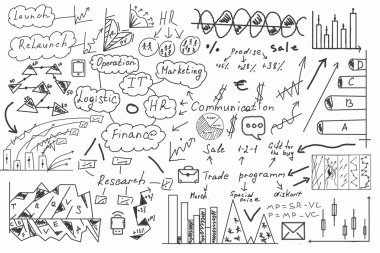 Launch
HR
Relaunch
%
Prodise
sale
+15%
+28%
+38%
Operation
Marketing
IT
D
C
B
A
Logistic
HR
Communication
€
$
$
$
Finance
Sale
1-2-1
Gift for
the buy
Research
Trade programm
March
Special
price
diskont
MP=SR-VC
P=MP-VC